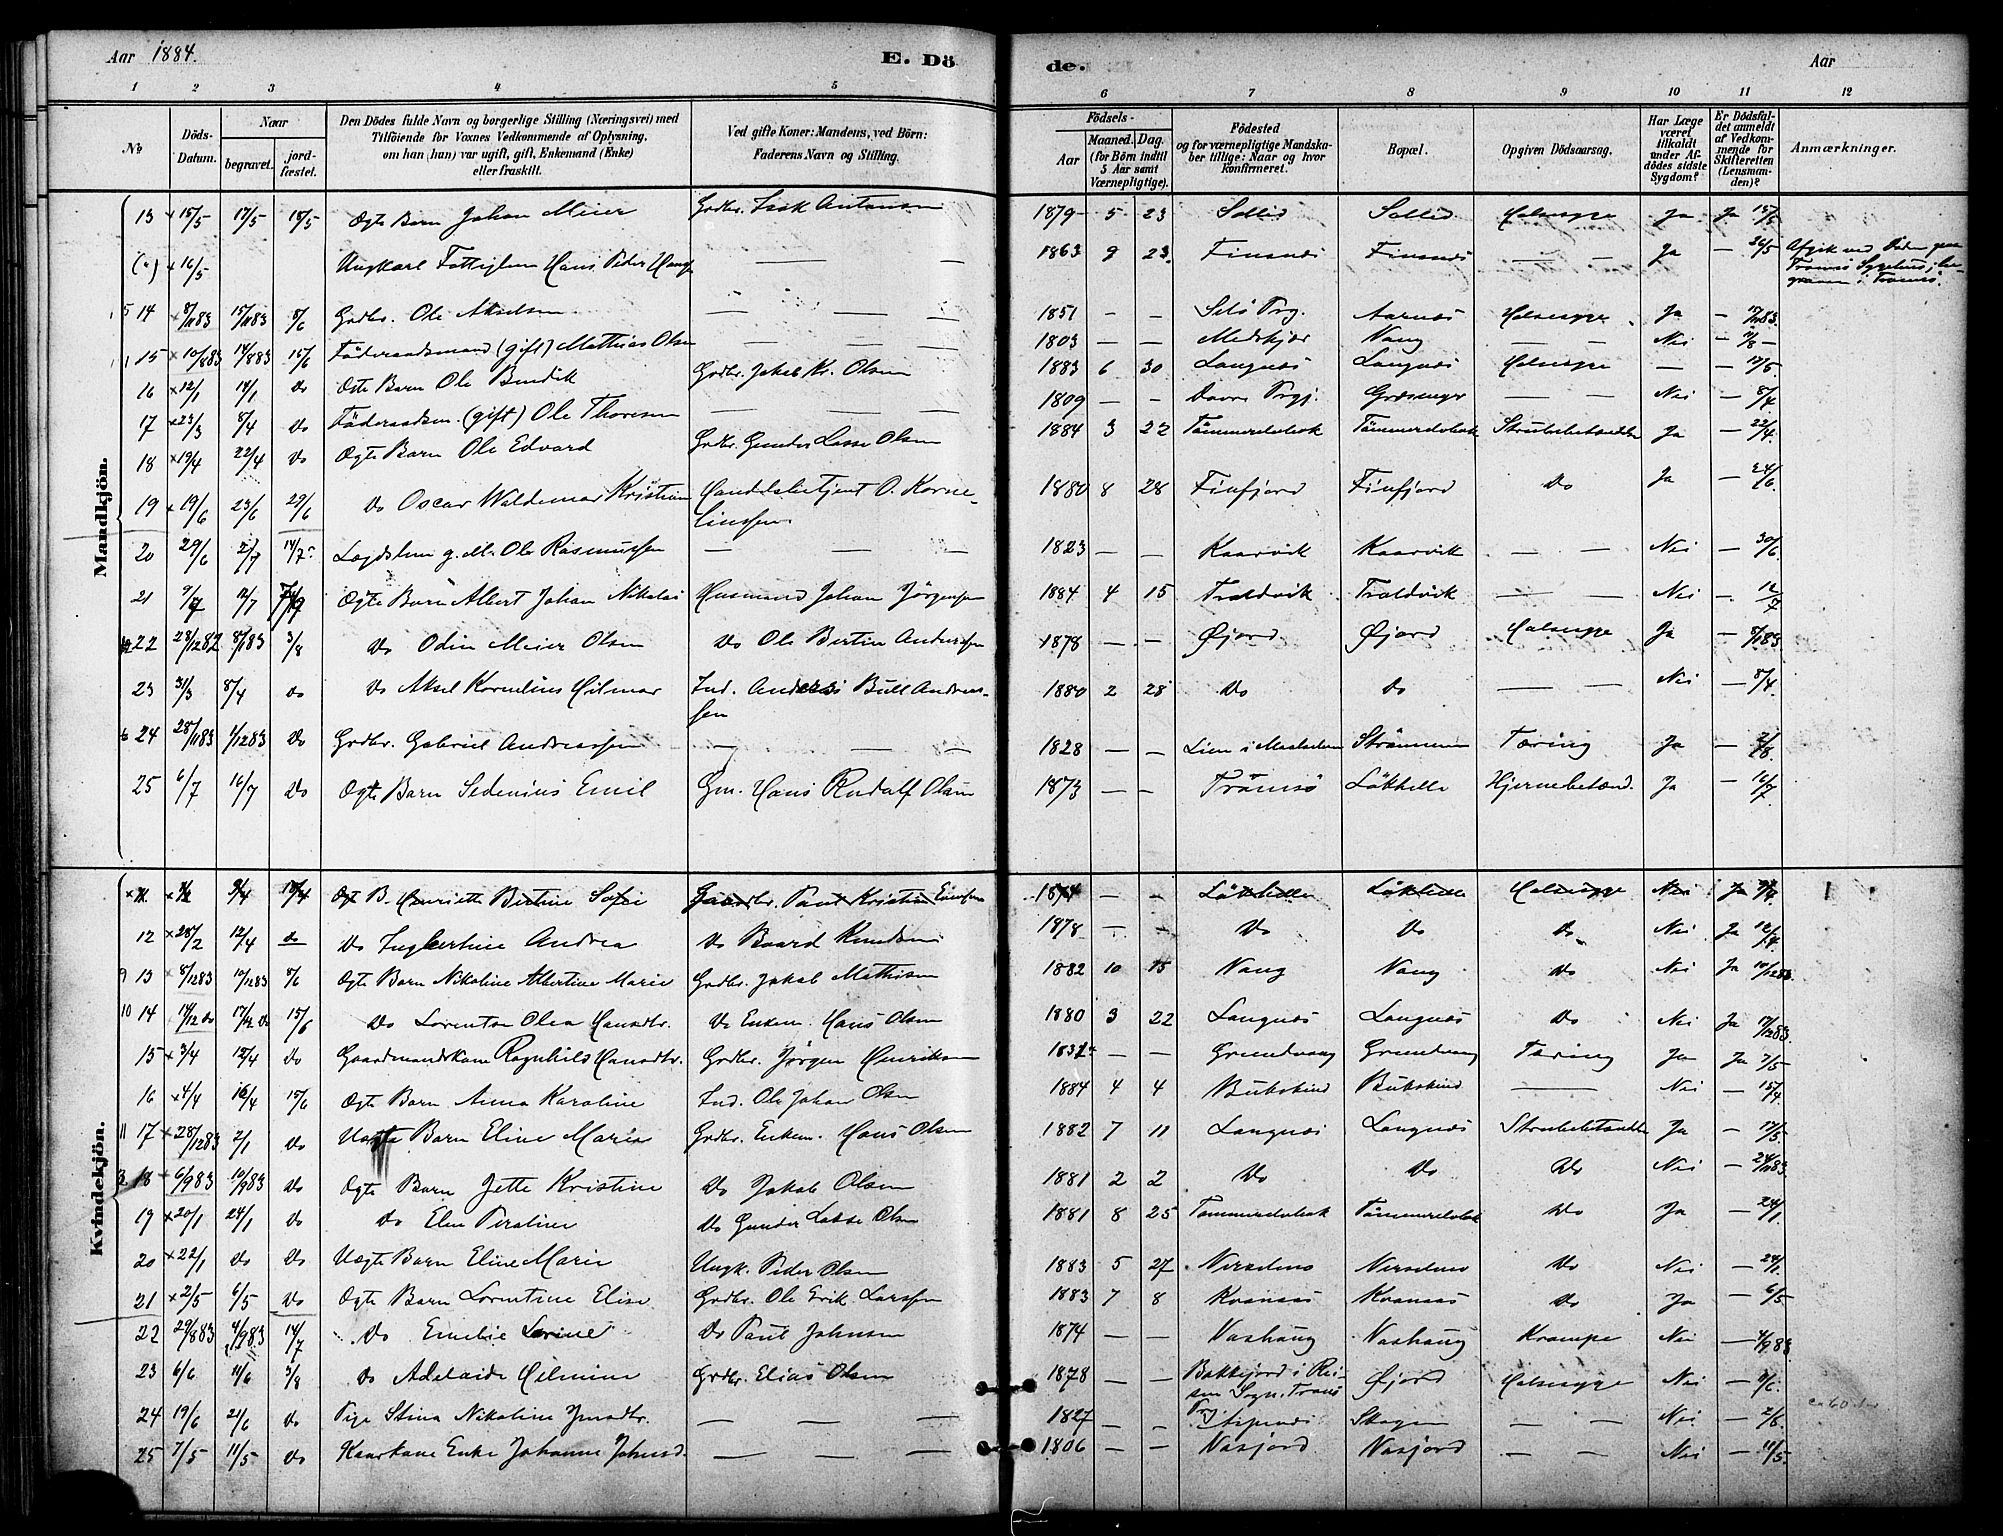 Aar 1884.
E. Döde.
Aar
1 2 3 4 5 6 7 8 9 10 11 12
No
Döds-Datum.
Naar
begravet.
jord-fæstet.
Den Dödes fulde Navn og borgerlige Stilling (Næringsvei) med
Tilföiende for Voxnes Vedkommende af Oplysning,
om han (hun) var ugift, gift, Enkemand (Enke)
eller fraskilt.
Ved gifte Koner: Mandens, ved Börn:
Faderens Navn og Stilling.
Födsels-
Aar
Maaned. Dag.
(for Börn indtil
5 Aar samt
Værnepligtige).
Födested
og for værnepligtige Mandska-
ber tillige: Naar og hvor
konfirmeret.
Bopæl.
Opgiven Dödsaarsag.
Har Læge
været
tilkaldt
under Af-
dödes sidste
Sygdom?
Er Dödsfal-
det anmeldt
af Vedkom-
mende for
Skifteretten
(Lensman-
den)?
Anmærkninger.
Mandkjön.
13 15/5 17/5 15/5 Ægte Barn Johan Meier Grdbr. Isak Antonsen 1879 5 23 Sollid Sollid Halssyge Ja Ja 15/5
(") 16/5 Ungkarl Fattiglem Hans Peder Hans — — 1863 9 23 Finsnes Finsnes — — Ja — 26/5 Afgik ved Döden paa
Tromsö Sygehus; be-
graven i Tromsö.
14 8/1183 15/1183 8/6 Grdbr. Ole Akselsen — — — 1851 — — Aarnes Halssyge Ja
15 10/883 14/883 15/6 Föderaadsmand (gift) Mathias Olsen — — — 1803 — — Vang — — Nei
16 12/1 17/1 do Ægte Barn Ole Bendik Grdbr. Jakob Kr. Olsen 1883 6 30 Langnes Langnes Halssyge — — 17/5
17 23/3 8/4 do Föderaadsm. (gift) Ole Thoresen — — — 1809 — — Dovre Prgj. — — Nei — 8/4
18 19/4 22/4 do Ægte Barn Ole Edvard Grdbr. Gunder Lasse Olsen 1884 3 22 Tömmerelvbak Tömmerelvbak Strubebetændelse Ja — 22/4
19 19/6 23/6 29/6 Do Oscar Waldemar Kristian Handelsbetjent O. Korne-
liussen. 1880 8 28 Finfjord Finfjord Do Ja — 24/6
20 29/6 2/7 14/7 Lægdslem g. M. Ole Rasmussen — — — 1823 — — Kaarvik Kaarvik — — Nei — 30/6
21 9/7 12/7 Ægte Barn Albert Johan Nikolai Husmand Johan Jörgensen 1884 4 15 Troldvik Troldvik — — Nei — 12/7
22 28/1282 8/183 3/8 Do Odin Meier Olsen Do Ole Bertin Anderssen 1878 — — Øjord Øjord Halssyge Ja — 8/183
23 31/3 8/4 do Do Aksel Kornelius Hilmar Ind. Anders Bull Andreas-
sen 1880 2 28 Do Do — — Nei — 8/4
24 28/1183 1/1283 Do Grdbr. Gabriel Andreassen — — — 1828 — — Strömmen Tæring Ja
25 6/7 16/7 Do Ægte Barn Sedenius Emil Gm. Hans Rudolf Olsen 1873 — — Tromsö Lökhelle Hjernebetænd. Ja — 10/7
Kvindekjön.
11 9/4 Ægt. B. Henriette Bertine Sofie Gaardbr. Paul Kristian 1874 — — Lökhelle Lökhelle Halssyge Nei Ja
12 28/2 12/4 do Do Ingbertine Andrea Do Baard Knudsen 1878 — — Do Do Do Nei Ja 12/4
13 8/1283 10/1283 8/6 Ægte Barn Nikoline Albertine Marie Grdbr. Jakob Mathisen 1882 10 15 Vang Vang Do Nei Ja 10/1283
14 14/12 do 17/12 do 15/6 Do Lorentse Olea Hansdtr. Do Enkem. Hans Olsen 1880 3 22 Langnes Langnes Do Nei Ja 17/1283
15 3/4 12/4 do Gaardmandskone Ragnhild Hansdtr. Grdbr. Jörgen Henriksen — — Grundvaag Grundvaag Tæring Ja Ja 7/5
16 4/4 16/4 15/6 Ægte Barn Anna Karoline Ind. Ole Johan Olsen 1884 4 4 Bukskind Bukskind — Nei — 15/4
17 28/1283 2/1 Do Uægte Barn Eline Marie Grdbr. Enkem. Hans Olsen 1882 7 11 Langnes Langnes Strubebetændelse Ja — 17/5
18 6/983 10/983 Do Ægte Barn Jette Kristine Do Jakob Olsen 1881 2 2 Do Do Do Nei
19 20/1 24/1 Do Do Elen Peroline Do Gunder Lasse Olsen 1881 8 25 Tömmerelvbak Tömmerelvbak Do Ja — 24/1
20 22/1 Do Do Uægte Barn Eline Marie Ungk. Peder Olsen 1883 5 27 Nerselnes Nerselnes Do Nei — 24/1
21 2/5 6/5 Do Ægte Barn Lorentine Elise Grdbr. Ole Erik Larssen 1883 7 8 Kvannaas Kvannaas Do Ja — 6/5
22 29/883 4/983 14/7 Do Emelie Lorine Do Paul Johnsen 1874 — — Vashaug Vashaug Krampe Nei — 4/983
23 6/6 11/6 3/8 Do Adelaide Hilmine Grdbr. Elias Olsen 1878 — — Bakkejord i Rei-
sen Sogn. Tromsö
Prgj. Øjord Halssyge Nei
24 19/6 21/6 do Pige Stina Nikoline Jensdtr. — — — 1827 — — Skogen — — Nei ca 60 Aar
25 7/5 11/5 do Kaarkone Enke Johanne Johnsd. — — — 1806 — — Vasjord Vasjord — — Nei — 11/5.